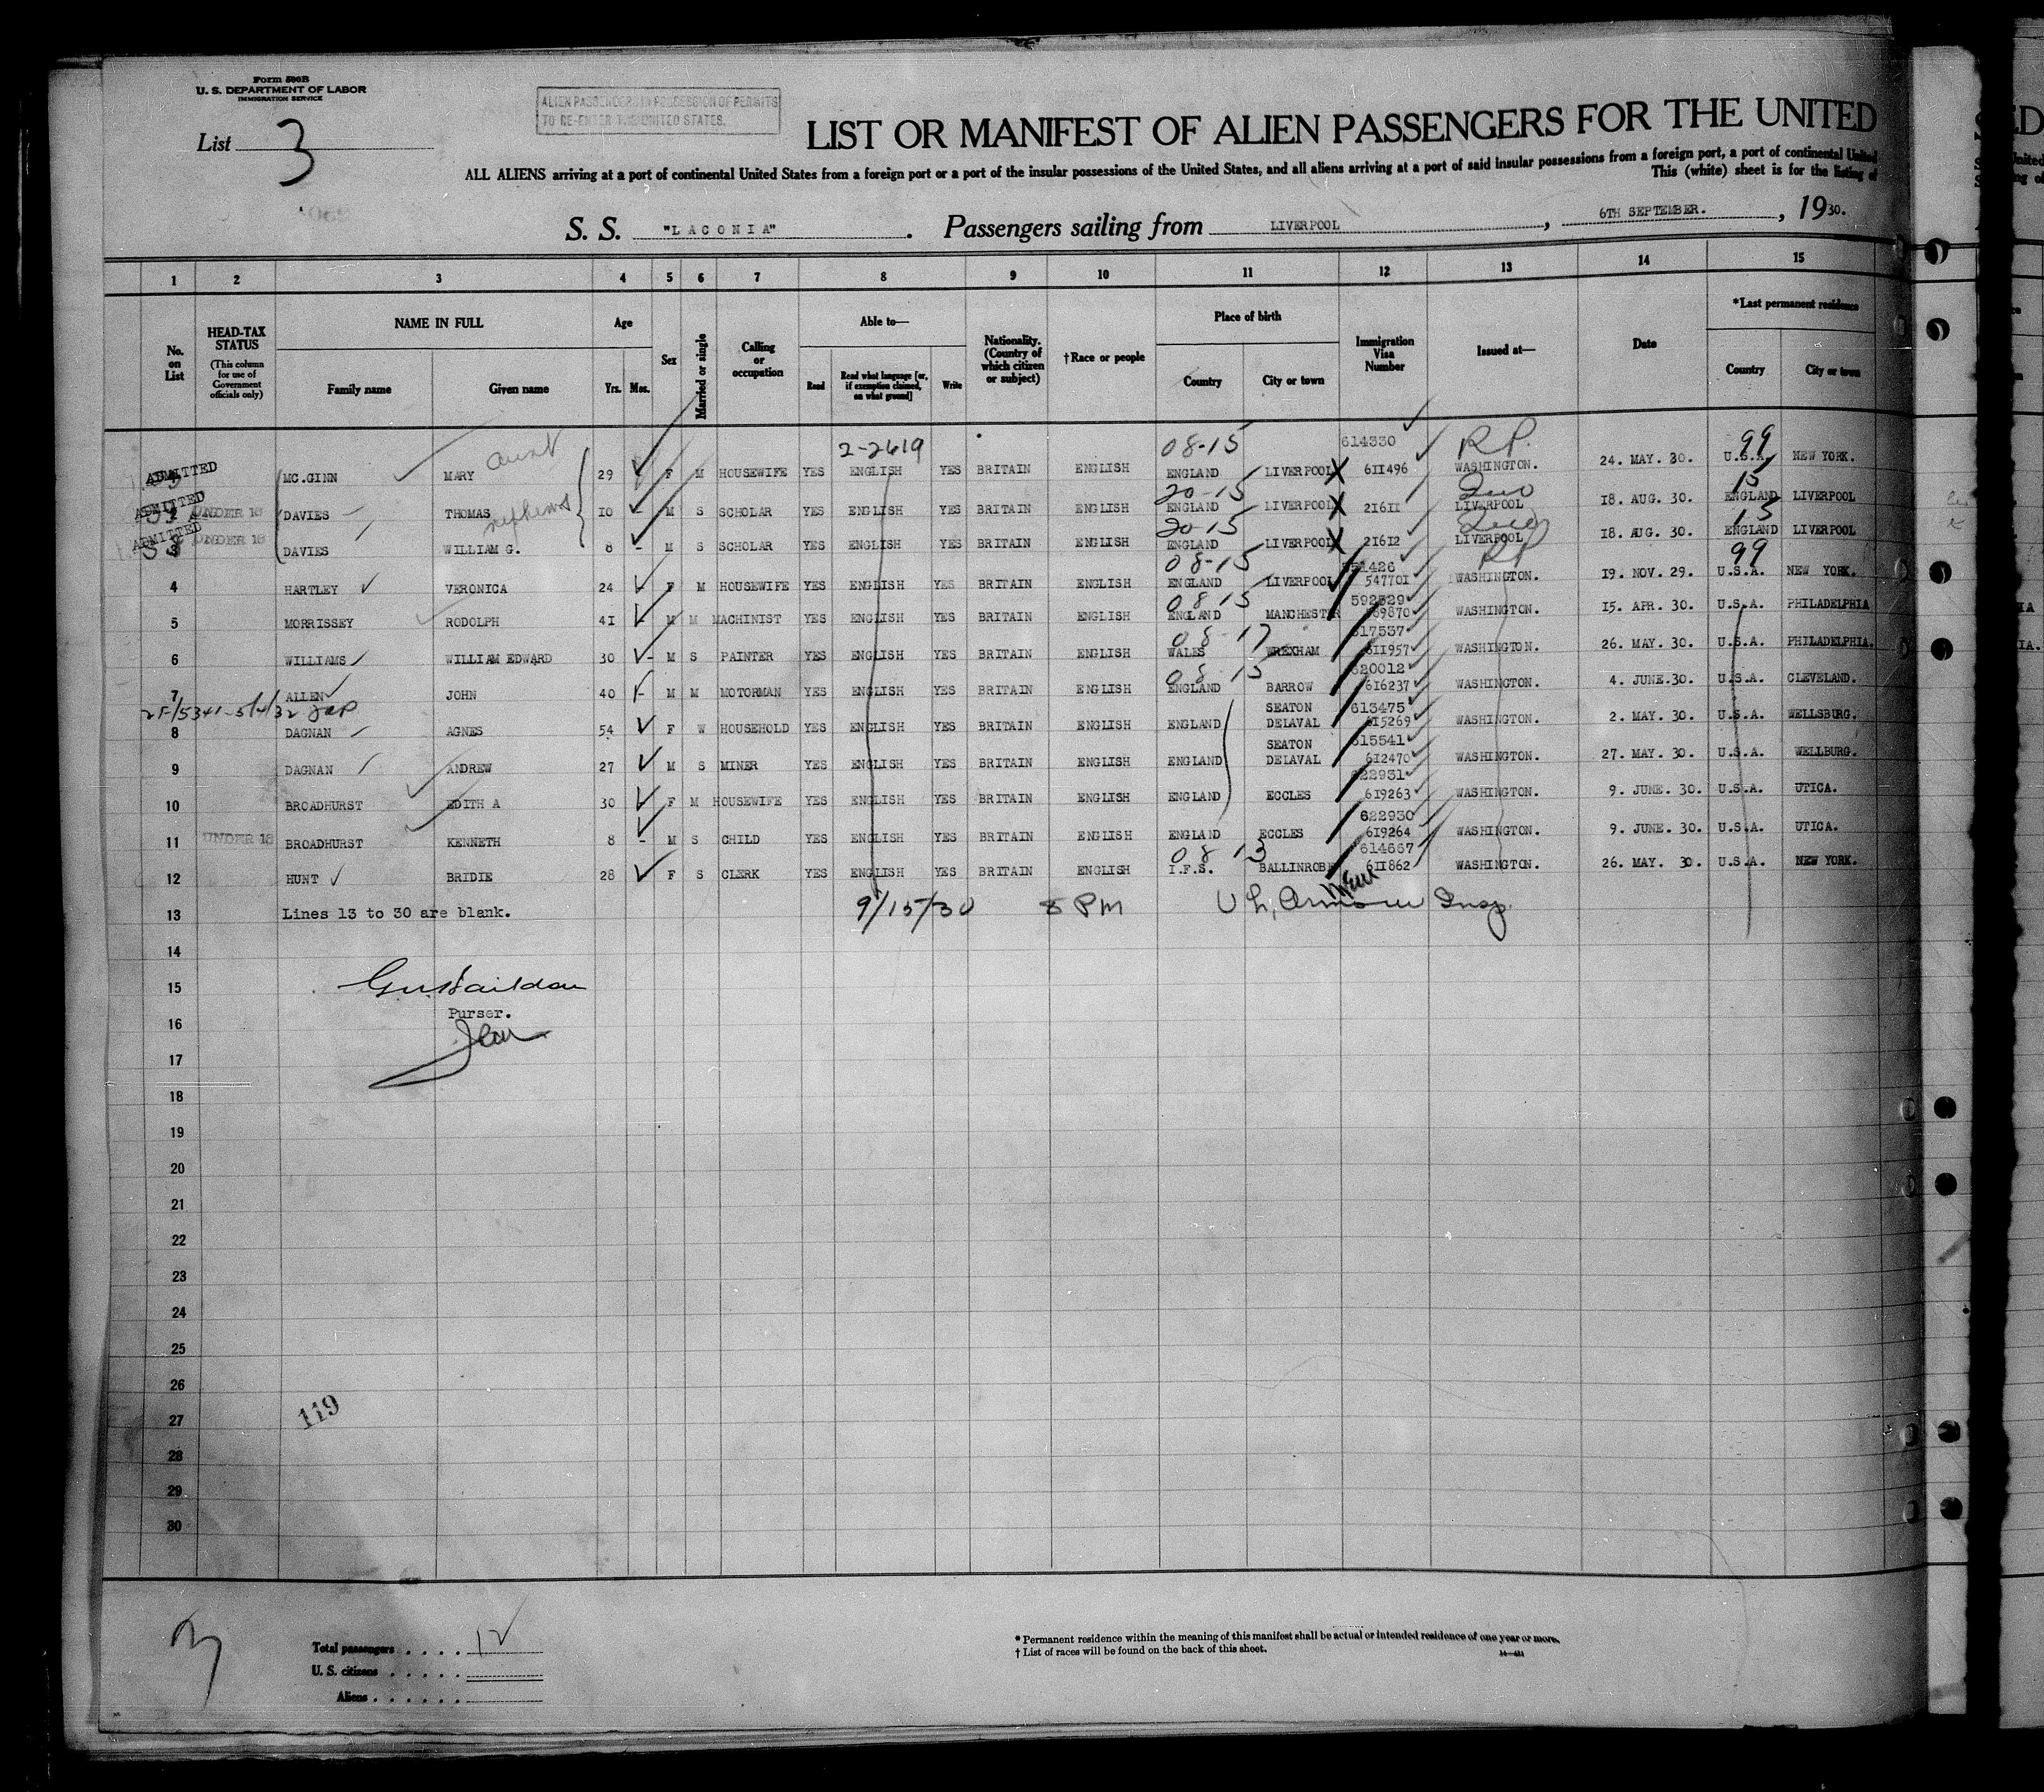 Form 500B
U. S. DEPARTMENT OF LABOR
IMMIGRATION SERVICE
List 3
ALIEN PASSENGERS IN POSSESSION OF PERMITS
TO RE-ENTER THE UNITED STATES.
LIST OR MANIFEST OF ALIEN PASSENGERS FOR THE UNITED
ALL ALIENS arriving at a port of continental United States from a foreign port or a port of the insular possessions of the United States, and all aliens arriving at a port of said insular possessions from a foreign port, a port of continental United
This (white) sheet is for the listing of
S. S. "LACONIA". Passengers sailing from LIVERPOOL, 6TH SEPTEMBER., 1930.
1 2 3 4 5 6 7 8 9 10 11 12 13 14 15
No. on List
HEAD-TAX STATUS (This column for use of Government officials only)
NAME IN FULL Family name Given name
Age Yrs. Mos.
Sex
Married or single
Calling or occupation
Able to— Read Read what language [or, if exemption claimed, on what ground] Write
Nationality. (Country of which citizen or subject)
†Race or people
Place of birth Country City or town
Immigration Visa Number
Issued at—
Date
*Last permanent residence Country City or town
aunt 2-2619 08-15 614330 R.P. 99
ADMITTED MC.GINN MARY 29 F M HOUSEWIFE YES ENGLISH YES BRITAIN ENGLISH ENGLAND LIVERPOOL 611496 WASHINGTON. 24. MAY. 30. U.S.A. NEW YORK.
nephews 20-15 15
ADMITTED 2 UNDER 16 DAVIES THOMAS 10 - M S SCHOLAR YES ENGLISH YES BRITAIN ENGLISH ENGLAND LIVERPOOL 21611 LIVERPOOL 18. AUG. 30. ENGLAND LIVERPOOL
20-15 15
ADMITTED 3 UNDER 16 DAVIES WILLIAM G. 8 - M S SCHOLAR YES ENGLISH YES BRITAIN ENGLISH ENGLAND LIVERPOOL 21612 LIVERPOOL 18. AUG. 30. ENGLAND LIVERPOOL
08-15 551426 RP 99
4 HARTLEY VERONICA 24 F M HOUSEWIFE YES ENGLISH YES BRITAIN ENGLISH ENGLAND LIVERPOOL 547701 WASHINGTON. 19. NOV. 29. U.S.A. NEW YORK.
08-15 592529
5 MORRISSEY RODOLPH 41 M M MACHINIST YES ENGLISH YES BRITAIN ENGLISH ENGLAND MANCHESTER 569870 WASHINGTON. 15. APR. 30. U.S.A. PHILADELPHIA
08-17 617537
6 WILLIAMS WILLIAM EDWARD 30 - M S PAINTER YES ENGLISH YES BRITAIN ENGLISH WALES WREXHAM 611957 WASHINGTON. 26. MAY. 30. U.S.A. PHILADELPHIA.
08-15 620012
7 ALLEN JOHN 40 - M M MOTORMAN YES ENGLISH YES BRITAIN ENGLISH ENGLAND BARROW 616237 WASHINGTON. 4. JUNE.30. U.S.A. CLEVELAND.
SEATON 613475
8 DAGNAN AGNES 54 F W HOUSEHOLD YES ENGLISH YES BRITAIN ENGLISH ENGLAND DELAVAL 615269 WASHINGTON. 2. MAY. 30. U.S.A. WELLSBURG.
SEATON 615541
9 DAGNAN ANDREW 27 M S MINER YES ENGLISH YES BRITAIN ENGLISH ENGLAND DELAVAL 612470 WASHINGTON. 27. MAY. 30. U.S.A. WELLBURG.
622931
10 BROADHURST EDITH A 30 F M HOUSEWIFE YES ENGLISH YES BRITAIN ENGLISH ENGLAND ECCLES 619263 WASHINGTON. 9. JUNE. 30. U.S.A. UTICA.
622930
11 UNDER 16 BROADHURST KENNETH 8 - M S CHILD YES ENGLISH YES BRITAIN ENGLISH ENGLAND ECCLES 619264 WASHINGTON. 9. JUNE. 30. U.S.A. UTICA.
08 13 614667
12 HUNT BRIDIE 28 F S CLERK YES ENGLISH YES BRITAIN ENGLISH I.F.S. BALLINROBE 611862 WASHINGTON. 26. MAY. 30. U.S.A. NEW YORK.
13 Lines 13 to 30 are blank. 9/15/30 8 PM Insp.
14
15
Purser.
16
17
18
19
20
21
22
23
24
25
26
119
27
28
29
30
3
Total passengers . . . . 12
U. S. citizens . . . . .
Aliens . . . . . .
* Permanent residence within the meaning of this manifest shall be actual or intended residence of one year or more.
† List of races will be found on the back of this sheet.